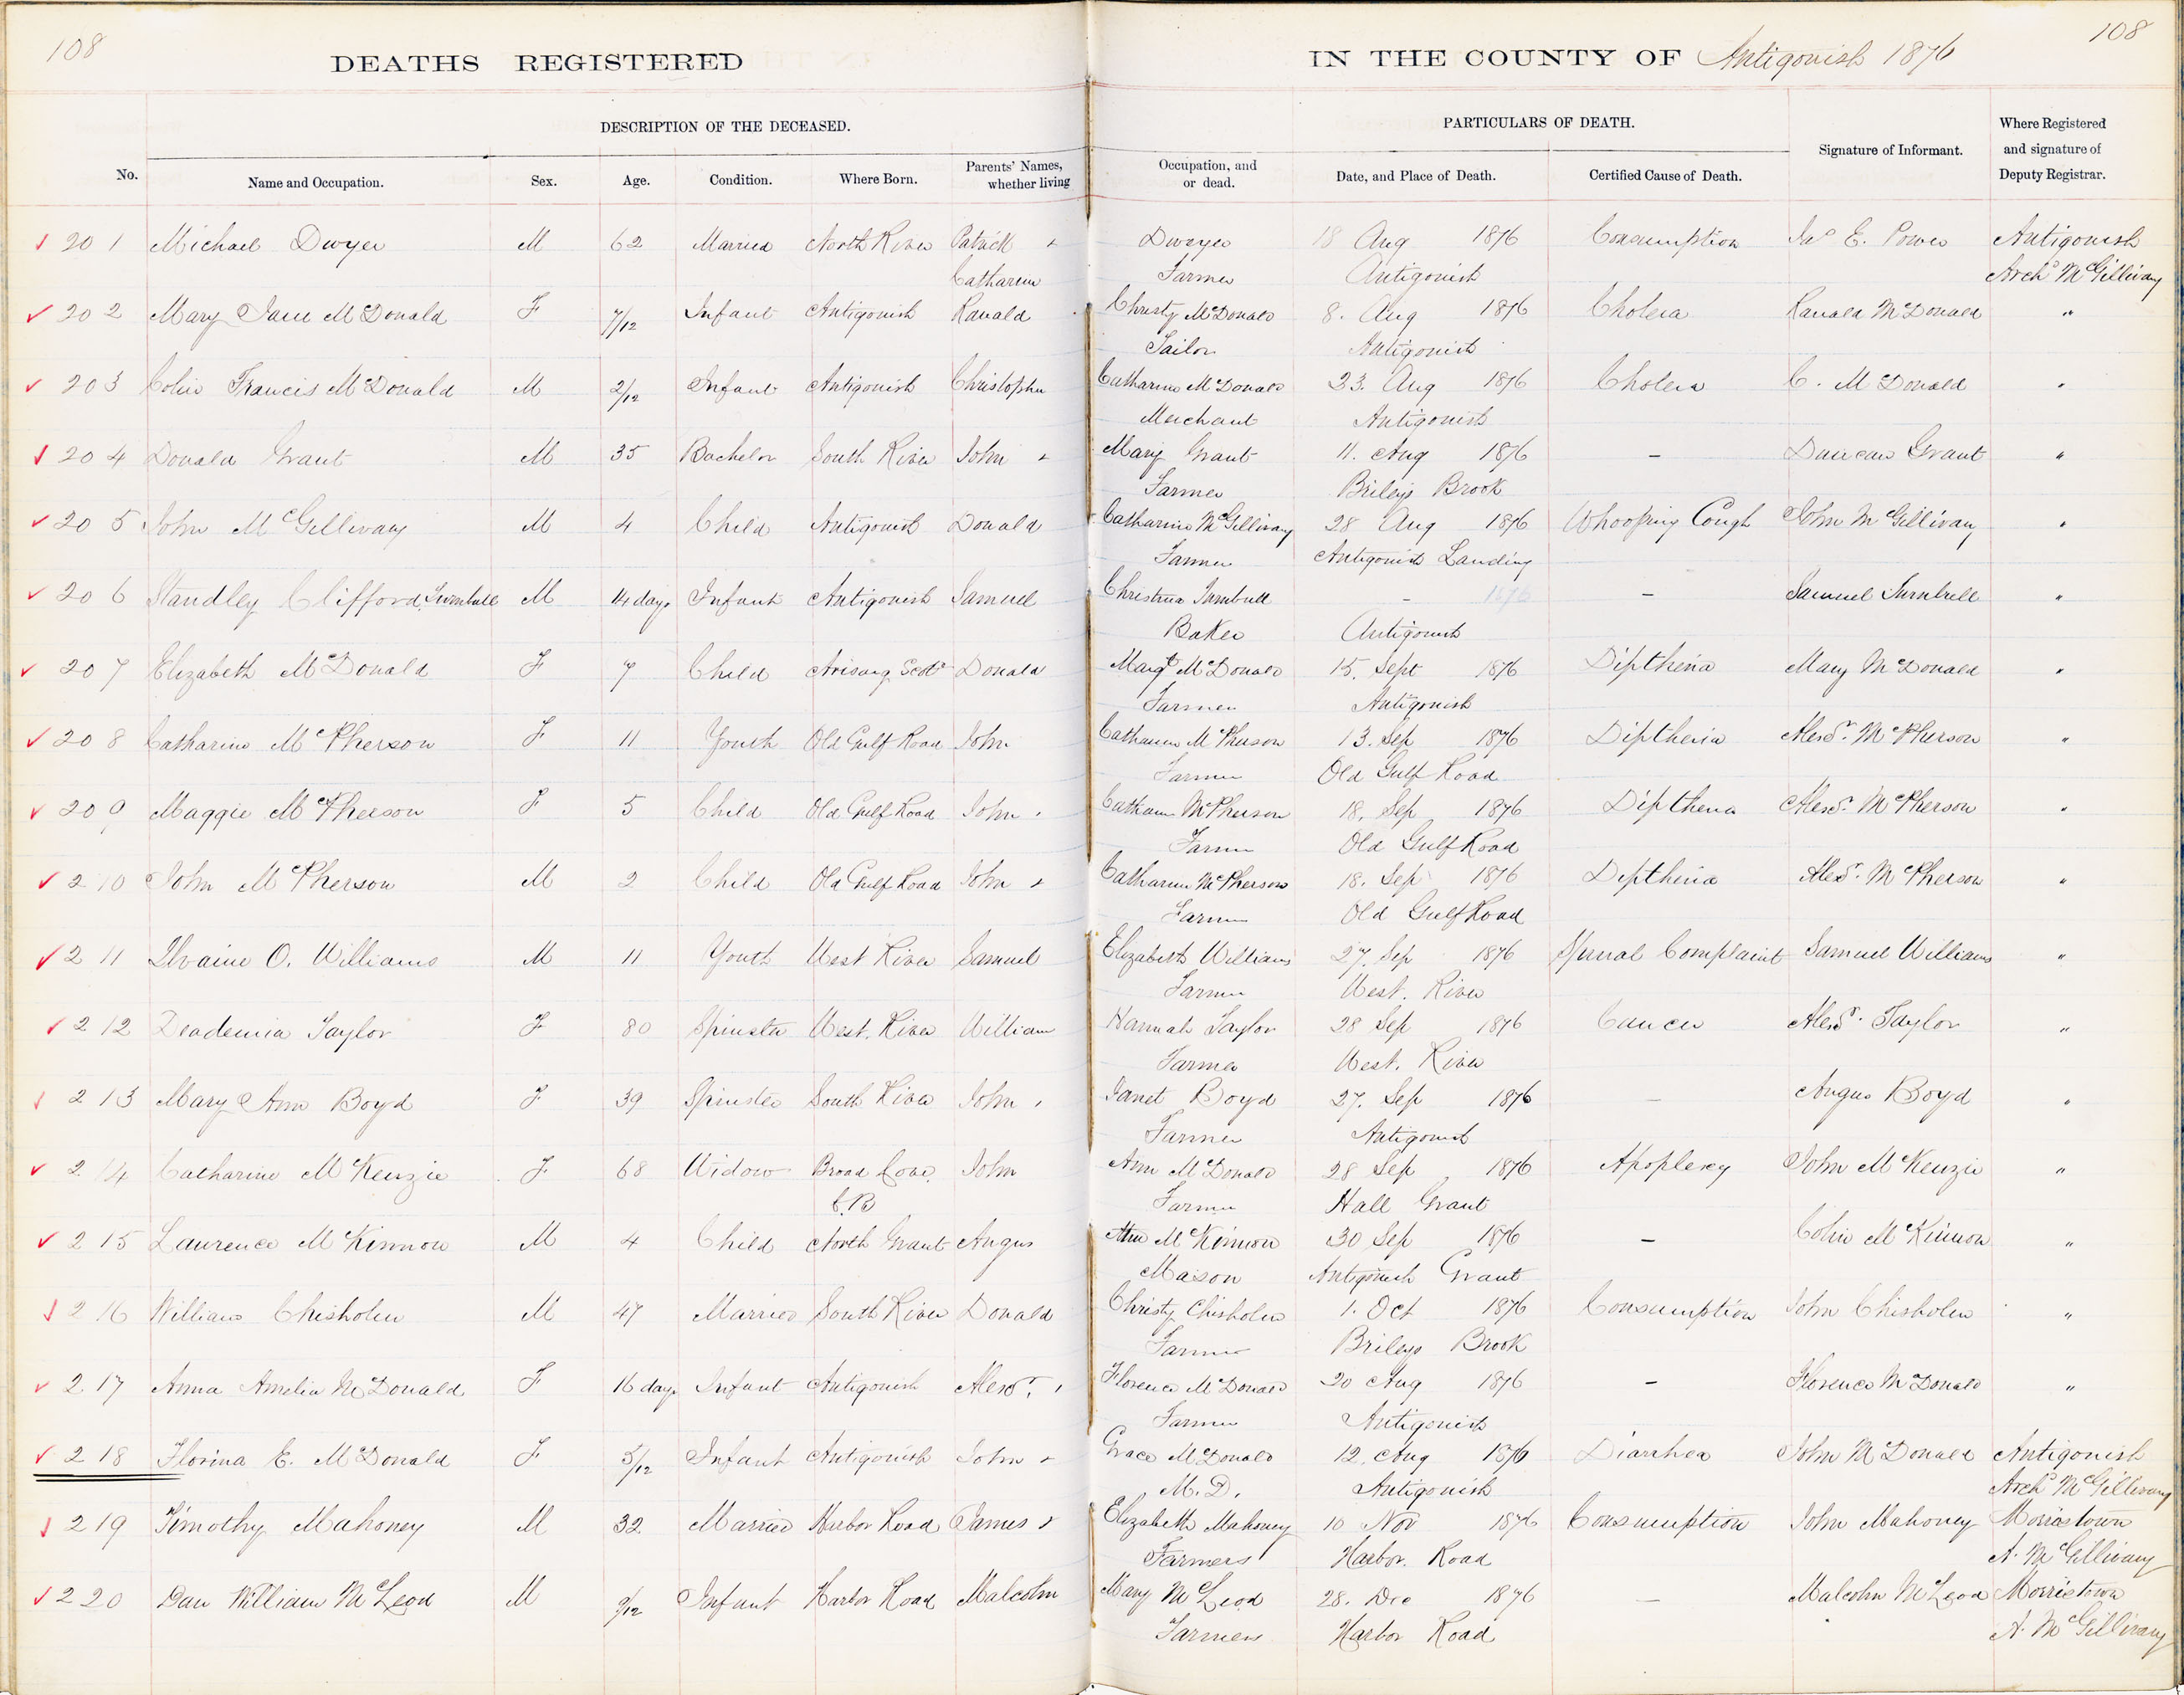 108
108
DEATHS REGISTERED IN THE COUNTY OF Antigonish 1876
DESCRIPTION OF THE DECEASED. PARTICULARS OF DEATH. Where Registered and signature of Deputy Registrar.
No. Name and Occupation. Sex. Age. Condition. Where Born. Parents' Names, whether living Occupation, and or dead. Date, and Place of Death. Certified Cause of Death. Signature of Informant.
201 Michael Dwyer M 62 Married North River Patrick + Dwyer 18 Aug 1876 Consumption Jno E. Power Antigonish
Catharine Farmer Antigonish Archd McGillivray
202 Mary Jane McDonald F 7/12 Infant Antigonish Ranald Christy McDonald 8. Aug 1876 Cholera Ranald McDonald "
Tailor Antigonish
203 Colin Francis McDonald M 2/12 Infant Antigonish Christopher Catharine McDonald 23. Aug 1876 Cholera C. McDonald "
Merchant Antigonish
204 Donald Grant M 35 Bachelor South River John + Mary Grant 11. Aug 1876 — Duncan Grant "
Farmer Brileys Brook
205 John McGillivray M 4 Child Antigonish Donald Catharine McGillivray 28 Aug 1876 Whooping Cough John McGillivray "
Farmer Antigonish Landing
206 Standley Clifford Turnbull M 14 days Infant Antigonish Samuel Christina Turnbull — 1876 — Samuel Turnbull "
Baker Antigonish
207 Elizabeth McDonald F 7 Child Arisaig Scotd Donald Margt McDonald 15. Sept 1876 Diptheria Mary McDonald "
Farmer Antigonish
208 Catharine McPherson F 11 Youth Old Gulf Road John Catharine McPherson 13. Sep 1876 Diptheria Alexr. McPherson "
Farmer Old Gulf Road
209 Maggie McPherson F 5 Child Old Gulf Road John Catharine McPherson 18. Sep 1876 Diptheria Alexr. McPherson "
Farmer Old Gulf Road
210 John McPherson M 2 Child Old Gulf Road John + Catharine McPherson 18. Sep 1876 Diptheria Alexr. McPherson "
Farmer Old Gulf Road
211 O. Williams M 11 Youth West River Samuel Elizabeth Williams 27. Sep 1876 Spinal Complaint Samuel Williams "
Farmer West. River
212 Deademia Taylor F 80 Spinster West. River William Hannah Taylor 28 Sep 1876 Cancer Alexr. Taylor "
Farmer West. River
213 Mary Ann Boyd F 39 Spinster South River John Janet Boyd 27. Sep 1876 — Angus Boyd "
Farmer Antigonish
214 Catharine McKenzie F 68 Widow Broad Cove, John Ann McDonald 28 Sep 1876 Apoplexy John McKenzie "
C.B Farmer Hall Grant
215 Laurence McKinnon M 4 Child North Grant Angus Ann McKinnon 30 Sep 1876 — Colin McKinnon "
Mason Antigonish Grant
216 William Chisholm M 47 Married South River Donald Christy Chisholm 1. Oct 1876 Consumption John Chisholm "
Farmer Brileys Brook
217 Anna Amelia McDonald F 16 days Infant Antigonish Alexr. Florence McDonald 20 Aug 1876 — Florence McDonald "
Farmer Antigonish
218 Florina E. McDonald F 5/12 Infant Antigonish John + Grace McDonald 12. Aug 1876 Diarrhea John McDonald Antigonish
M.D. Antigonish Archd McGillivray
219 Timothy Mahoney M 32 Married Harbor Road James + Elizabeth Mahoney 10 Nov 1876 Consumption John Mahoney Morristown
Farmers Harbor. Road A. McGillivray
220 Dan William McLeod M 9/12 Infant Harbor Road Malcolm Mary McLeod 28. Dec 1876 — Malcolm McLeod Morristown
Farmers Harbor Road A. McGillivray